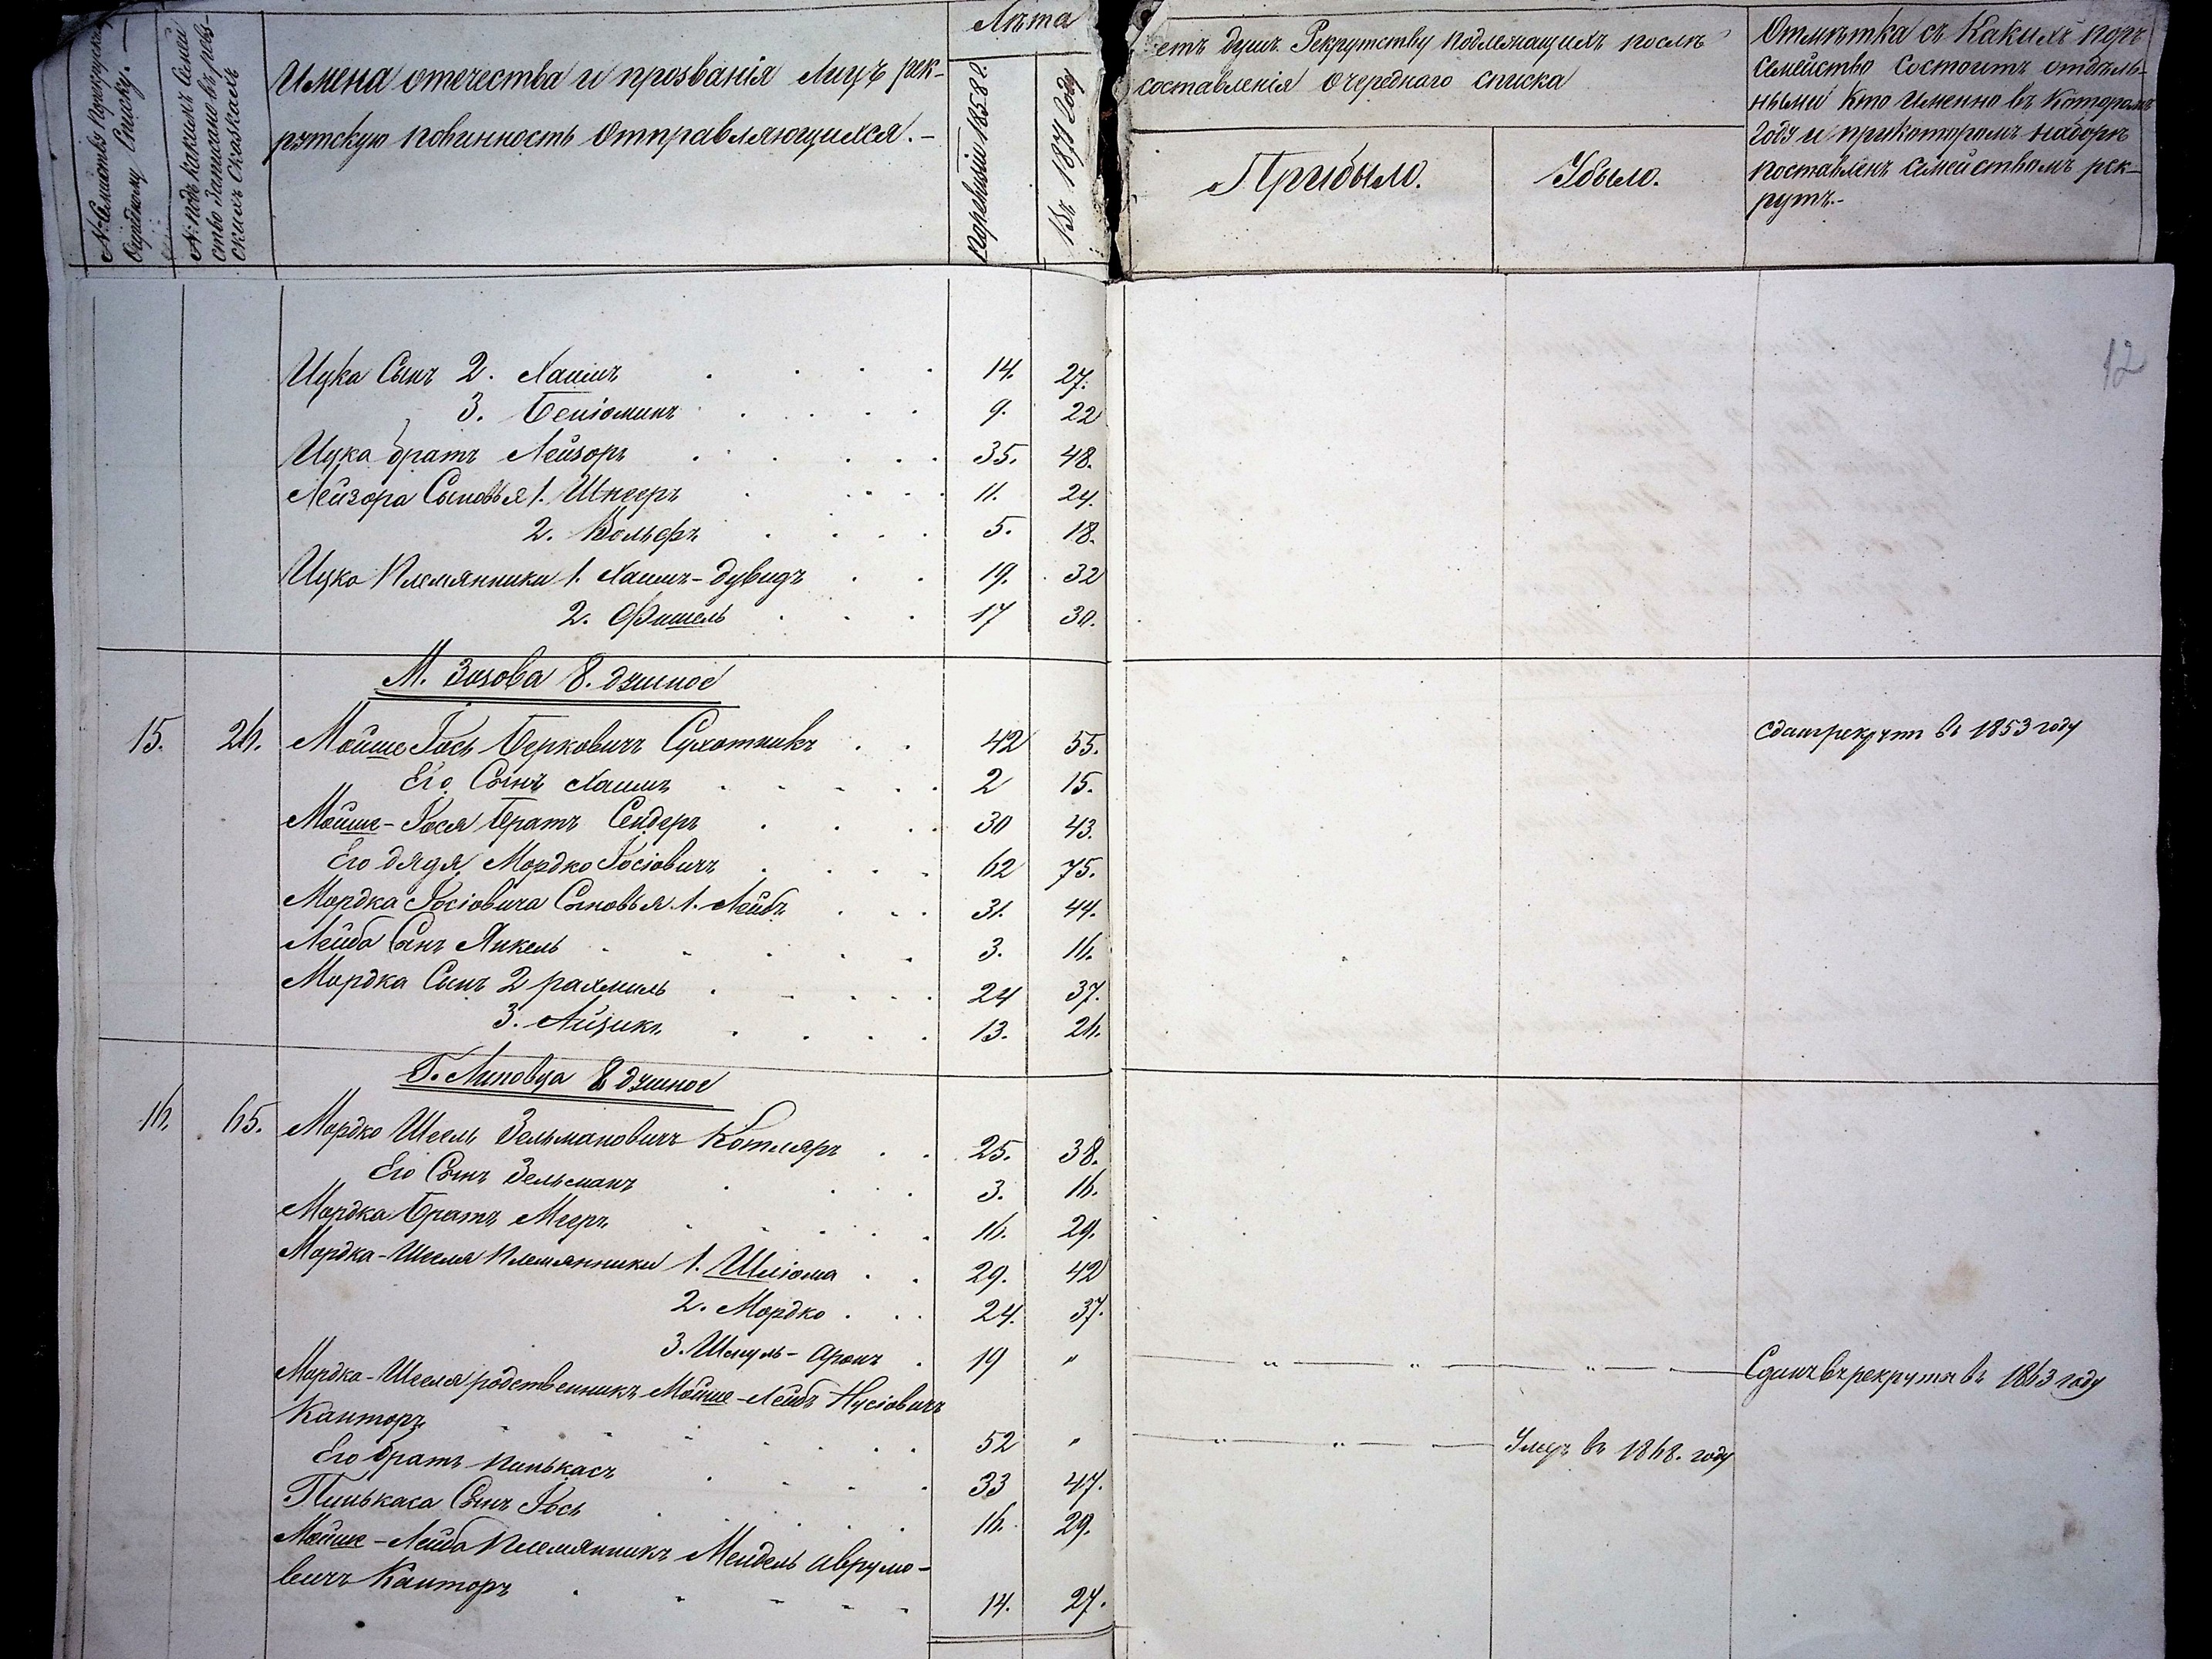 № Семейства по рекрутскому
Очередному Списку.
№ подъ какимъ Семей
ство записано въ реви
скихъ Сказкахъ
Имена отечества и прозванія лицъ рек-
рутскую повинность отправляющихся.-
Лѣта
По ревизіи 1858 г.
Въ 1871 году
етъ душъ Рекрутству подлежащихъ послѣ
составленія очереднаго списка
Прибыло.
Убыло.
Отмѣтка съ какихъ поръ
семейство состоитъ отдѣль-
нымъ кто именно въ которомъ
году и прикоторомъ наборѣ
поставленъ семействомъ рек-
рутъ.-
12
Ицка Сынъ 2. Хаимъ 14. 27.
3. Беніоминъ 9. 22
Ицка братъ Лейзоръ 35. 48.
Лейзора Сыновья 1. Шнееръ 11. 24.
2. Вольфъ 5. 18.
Ицка Племянники 1. Хаимъ-Дувидъ 19. 32
2. Фишель 17 30.
М. Зозова 8. душное
15. 26. Мойше Іось Берковичъ Сухотникъ 42 55. Сданъ рекрутъ въ 1853 году
Его Сынъ Хаимъ 2 15.
Мойше-Іося Братъ Сендеръ 30 43.
Его дядя Мордко Іосіовичъ 62 75.
Мордка Іосіовича Сыновья 1. Лейбъ 31. 44.
Лейба Сынъ Янкель 3. 16.
Мордка Сынъ 2 рахмиль 24 37.
3. Айзикъ 13. 26.
Г. Липовца 8 душное
16. 65. Мордко Шеель Зельмановичъ Котляръ 25. 38.
Его Сынъ Зельманъ 3. 16.
Мордка Братъ Мееръ 16. 29.
Мордка-Шееля Племянники 1. Шліома 29. 42
2. Мордко 24. 37.
3. Шмуль-Аронъ 19 " Сданъ въ рекрута въ 1863 году
Мордка-Шееля родственникъ Мойше-Лейбъ Нусіовичъ
Канторъ 52 " Умеръ въ 1868. году
Его братъ Пинькасъ 33 47.
Пинькаса Сынъ Іось 16. 29.
Мойше-Лейба Племянникъ Мендель Аврумо-
вичъ Канторъ 14. 27.